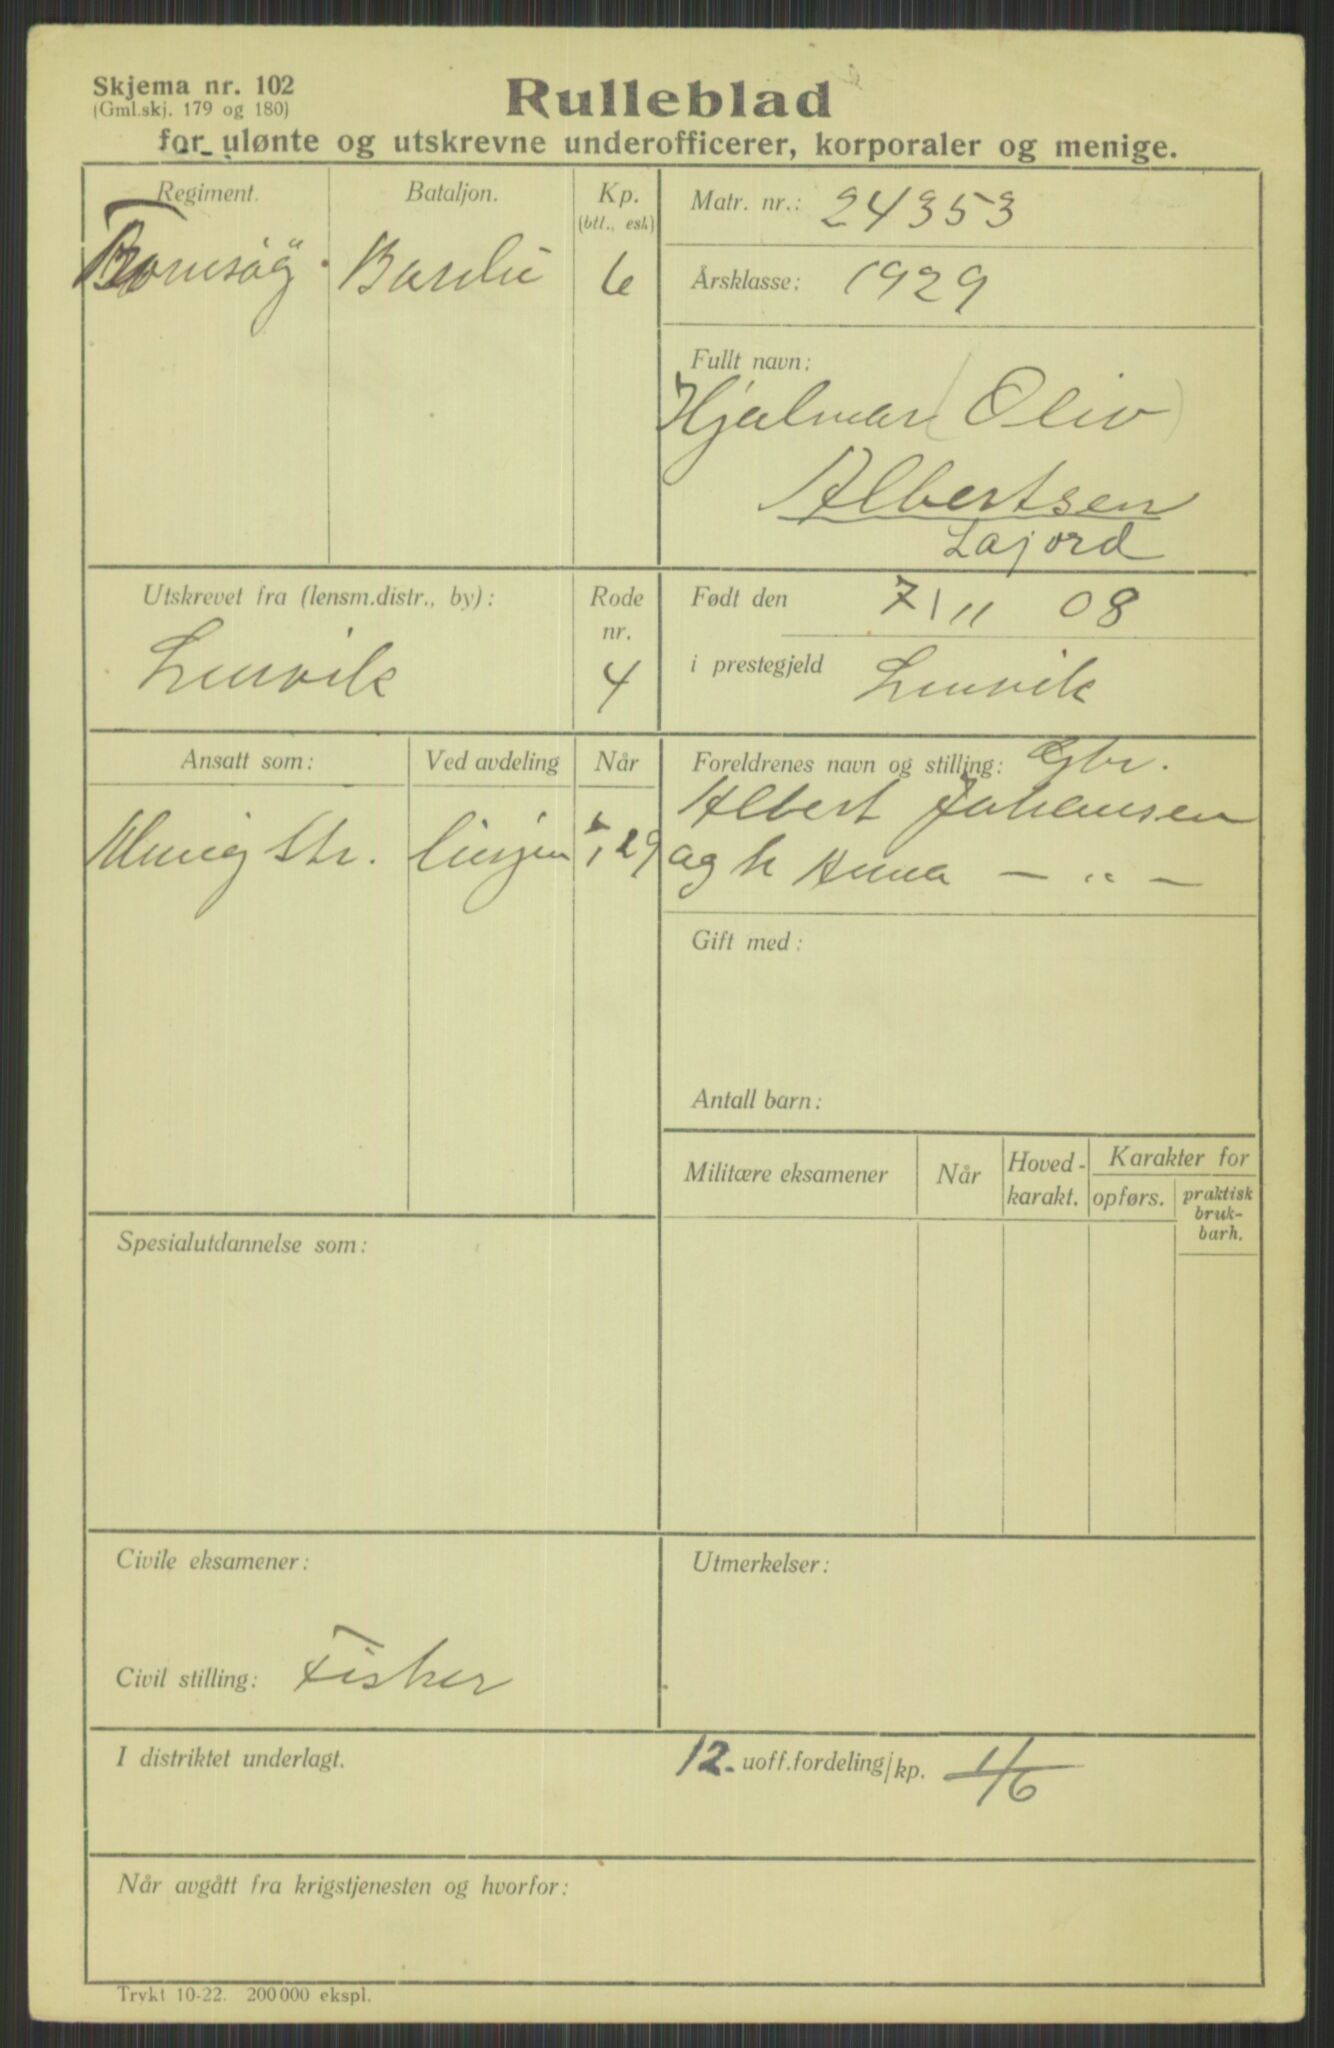 Skjema nr. 102
(Gml.skj. 179 og 180)
Rulleblad
for ulønte og utskrevne underofficerer, korporaler og menige.
Regiment.
Bataljon.
Kp.
(btl., esk)
Bardu
6
Matr. nr.: 24353
Årsklasse: 1929
Fullt navn:
Hjalmar (Oliv)
Albertsen
Lajord
Utskrevet fra (lensm.distr., by):
Lenvik
Rode
nr.
4
Født den 7/11 08
i prestegjeld Lenvik
Ansatt som:
Ved avdeling
Når
Menig Str.
linjen
29
Foreldrenes navn og stilling: Gbr.
Albert Johansen
og h Anna — „ —
Gift med:
Antall barn:
Militære eksamener
Når
Hoved-
karakt.
Karakter for
opførs.
praktisk
bruk-
barh.
Spesialutdannelse som:
Civile eksamener:
Civil stilling: Fisker
Utmerkelser:
I distriktet underlagt.
12. uoff.fordeling/kp.
Når avgått fra krigstjenesten og hvorfor:
Trykt 10-22. 200 000 ekspl.